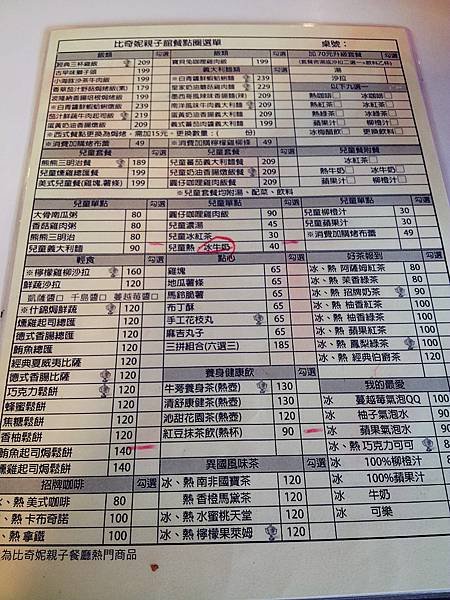 比奇妮親子館餐點圈選單 桌號：
飯類 勾選 飯類 勾選 加70元升級套餐
經典三杯雞飯 209 寶貝兔咖哩雞肉飯 199
古早味獅子頭 199 義大利麵類
小海豚沙茶牛肉飯 199 199
209 239
209 199
白酒蘑鮮蝦蛤蜊燉飯 239 南洋風味牛肉義大利麵 199
茄汁鮮蔬牛肉起司飯 219 239
199 199
※西式餐點更換為焗烤，需加15元，更換數量：（ 份）
※消費加購烤布蕾 49 ※消費加購檸檬雞柳沙拉 49
湯
沙拉
以下九選一
熱咖啡 冰咖啡
熱紅茶 冰紅茶
熱綠茶 冰綠茶
蘋果汁 柳橙汁
冰梅醋飲 更換飲料
兒童套餐 勾選 兒童套餐 勾選 兒童餐附餐
熊熊三明治餐 189 兒童義大利麵餐 199 冰紅茶
兒童燻雞總匯餐 199 兒童奶油香腸燉飯餐 199 熱牛奶 冰牛奶
美式兒童餐(雞塊.薯條) 199 圓仔咖哩雞肉飯餐 199 蘋果汁 柳橙汁
※兒童套餐均附湯、配菜、飲料
兒童單點 勾選 兒童單點 勾選 兒童單點 勾選
大骨南瓜粥 80 圓仔咖哩雞肉飯 90 兒童柳橙汁 30
香菇雞肉粥 80 兒童濃湯 45 兒童蘋果汁 30
熊熊三明治 80 兒童冰紅茶 30 ※消費加購烤布蕾 49
兒童義大利麵 90 兒童熱、冰牛奶 40
輕食 勾選 點心 勾選 好茶報到
※檸檬雞柳沙拉 160 雞塊 65 冰、熱 阿薩姆紅茶 80
鮮蔬沙拉 110 地瓜薯條 65 冰、熱 茉香綠茶 80
凱薩醬 千島醬 蔓越莓醬 馬鈴脆薯 65 冰、熱 招牌奶茶 90
※什錦焗鮮蔬 120 布丁酥 65 冰、熱 柚香紅茶 100
燻雞起司總匯 120 手工花枝丸 65 冰、熱 柚香綠茶 100
德式香腸總匯 120 麻吉丸子 65 冰、熱 蘋果紅茶 100
鮪魚總匯 120 三拼組合(六選三) 185 冰、熱 鳳梨綠茶 100
經典夏威夷比薩 120 養身健康飲 勾選 冰、熱 經典伯爵茶 120
德式香腸比薩 120 牛蒡養身茶(熱壺) 130 我的最愛
巧克力鬆餅 120 清舒健康茶(熱壺) 130 冰 蔓越莓氣泡QQ 100
蜂蜜鬆餅 120 沁甜花園茶(熱壺) 120 冰 柚子氣泡水 90
焦糖鬆餅 120 紅豆抹茶飲(熱杯) 90 冰 蘋果氣泡水 90
香柚鬆餅 120 異國風味茶 勾選 冰、熱 巧克力可可
鮪魚起司焗鬆餅 140 冰、熱 南非國寶茶 120 冰 100%柳橙汁
燻雞起司焗鬆餅 140 熱 香橙瑪黛茶 120 冰 100%蘋果汁
招牌咖啡 勾選 冰、熱 水蜜桃天堂 120 冰 牛奶
冰、熱 美式咖啡 80 冰、熱 檸檬果萊姆 120 冰 可樂
冰、熱 卡布奇諾 100
冰、熱 拿鐵 100
為比奇妮親子餐廳熱門商品